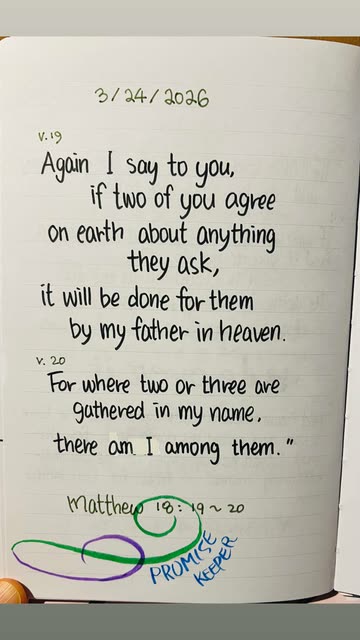 3/24/2026
v.19
Again I say to you,
if two of you agree
on earth about anything
they ask,
it will be done for them
by my father in heaven.
v. 20
For where two or three are
gathered in my name,
there am I among them."
Matthew 18:19~20
PROMISE
KEEPER